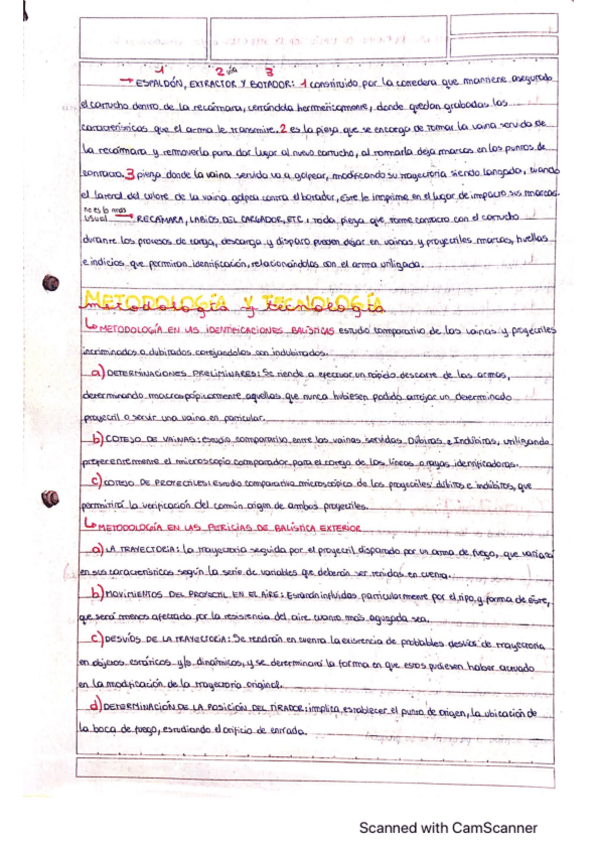 1 2 3
→ ESPALDÓN, EXTRACTOR Y BOTADOR: 1 constituido por la corredera que mantiene asegurado
el cartucho dentro de la recámara, cerrándola herméticamente, donde quedan grabadas las
características que el arma le transmite. 2 es la pieza que se encarga de tomar la vaina servida de
la recámara y removerla para dar lugar al nuevo cartucho, al tomarla deja marcas en los puntos de
contacto. 3 pieza donde la vaina servida va a golpear, modificando su trayectoria siendo lanzada, cuando
el lateral del culote de la vaina golpea contra el botador, éste le imprime en el lugar de impacto sus marcas.
no es lo más
usual → RECÁMARA, LABIOS DEL CARGADOR, ETC: toda pieza que tome contacto con el cartucho
durante los procesos de carga, descarga y disparo pueden dejar en vainas y proyectiles marcas, huellas
e indicios que permitan identificación, relacionándolos con el arma utilizada.
METODOLOGÍA Y TECNOLOGÍA
metodología y tecnología
↳ METODOLOGÍA EN LAS IDENTIFICACIONES BALÍSTICAS estudio comparativo de las vainas y proyectiles
incriminados o dubitados cotejandolos con indubitados.
a) DETERMINACIONES PRELIMINARES: Se tiende a efectuar un rápido descarte de las armas,
determinando macroscópicamente aquellas que nunca hubiesen podido arrojar un determinado
proyectil o servir una vaina en particular.
b) COTEJO DE VAINAS: estudio comparativo entre las vainas servidas Dúbitas e Indúbitas, utilizando
preferentemente el microscopio comparador para el cotejo de las líneas o rayas identificadoras.
c) COTEJO DE PROYECTILES: estudio comparativo microscópico de los proyectiles dúbitos e indúbitos, que
permitirá la verificación del común origen de ambos proyectiles.
↳ METODOLOGÍA EN LAS PERICIAS DE BALÍSTICA EXTERIOR
a) LA TRAYECTORIA: la trayectoria seguida por el proyectil disparado por un arma de fuego, que variará
en sus características según la serie de variables que deberán ser tenidas en cuenta.
b) MOVIMIENTOS DEL PROYECTIL EN EL AIRE: Estarán influidos particularmente por el tipo y forma de éste,
que será menos afectado por la resistencia del aire cuanto más aguzado sea.
c) DESVÍOS DE LA TRAYECTORIA: Se tendrán en cuenta la existencia de probables desvíos de trayectoria
en objetos estáticos y/o dinámicos, y se determinará la forma en que estos pudiesen haber actuado
en la modificación de la trayectoria original.
d) DETERMINACIÓN DE LA POSICIÓN DEL TIRADOR: implica establecer el punto de origen, la ubicación de
la boca de fuego, estudiando el orificio de entrada.
Scanned with CamScanner